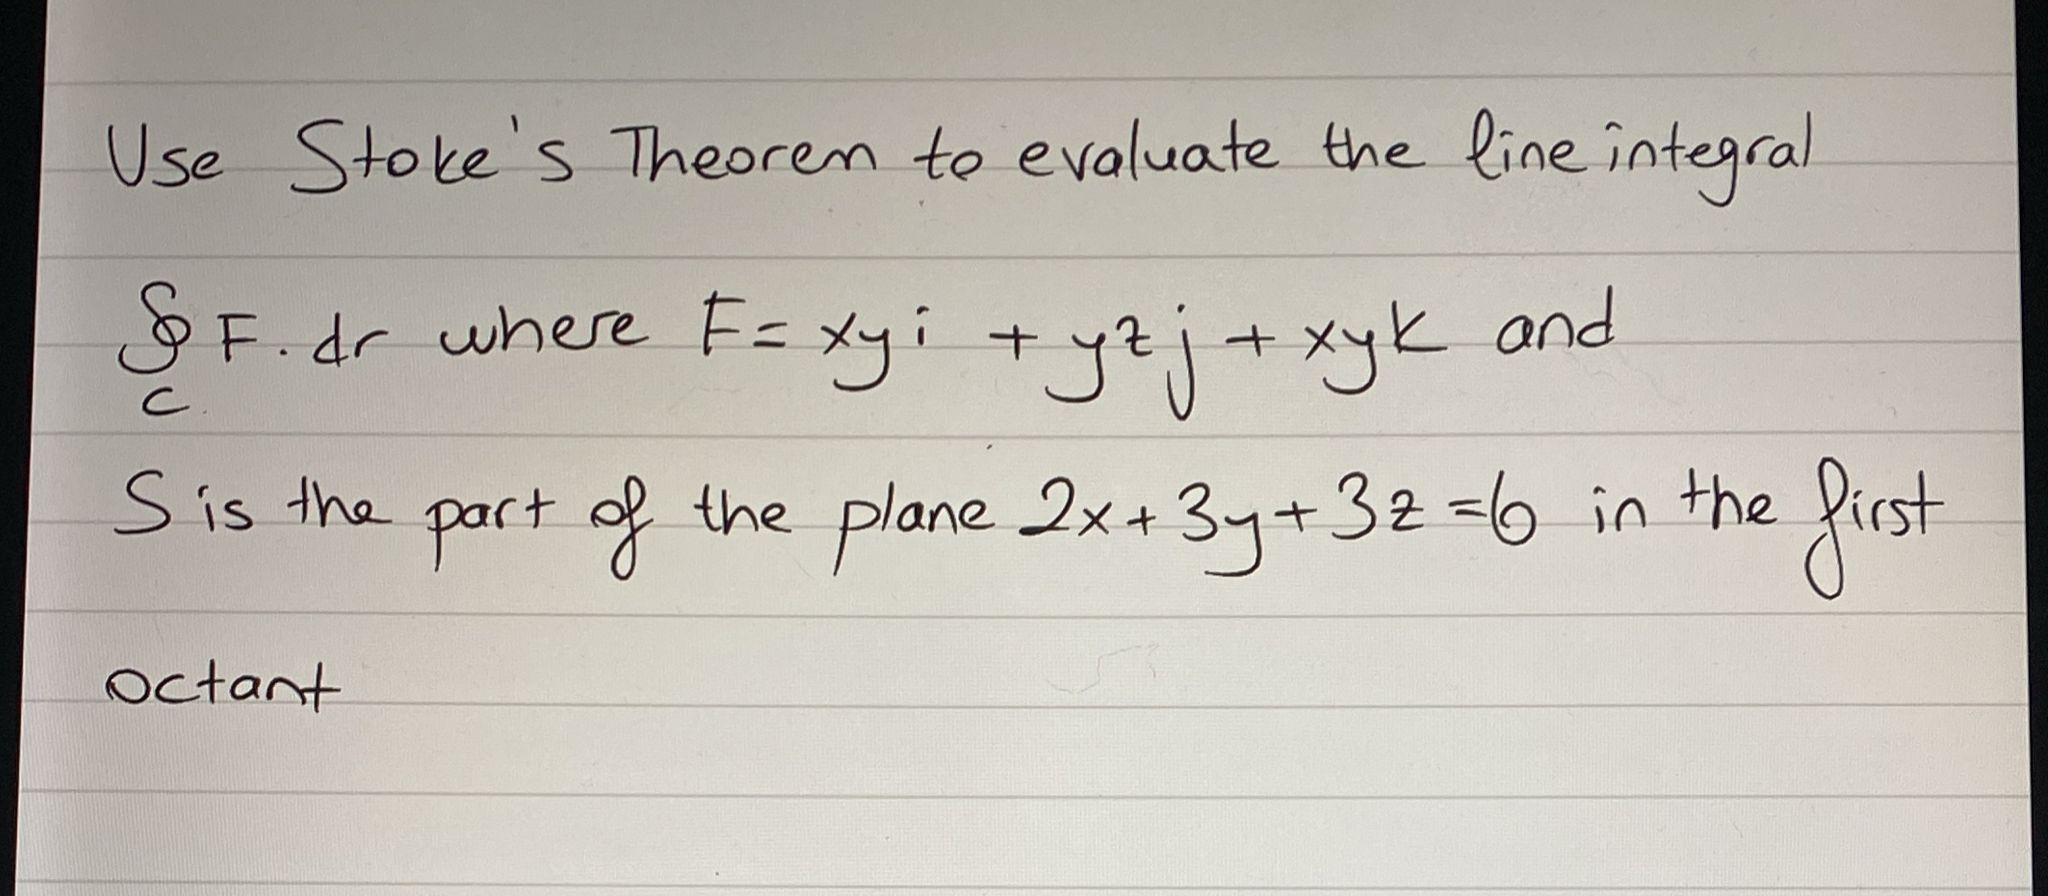 Use Stoke's Theorem to evaluate the line integral
∮ F. dr where F = xyi + yzj + xyk and
C.
S is the part of the plane 2x + 3y + 3z = 6 in the first
octant